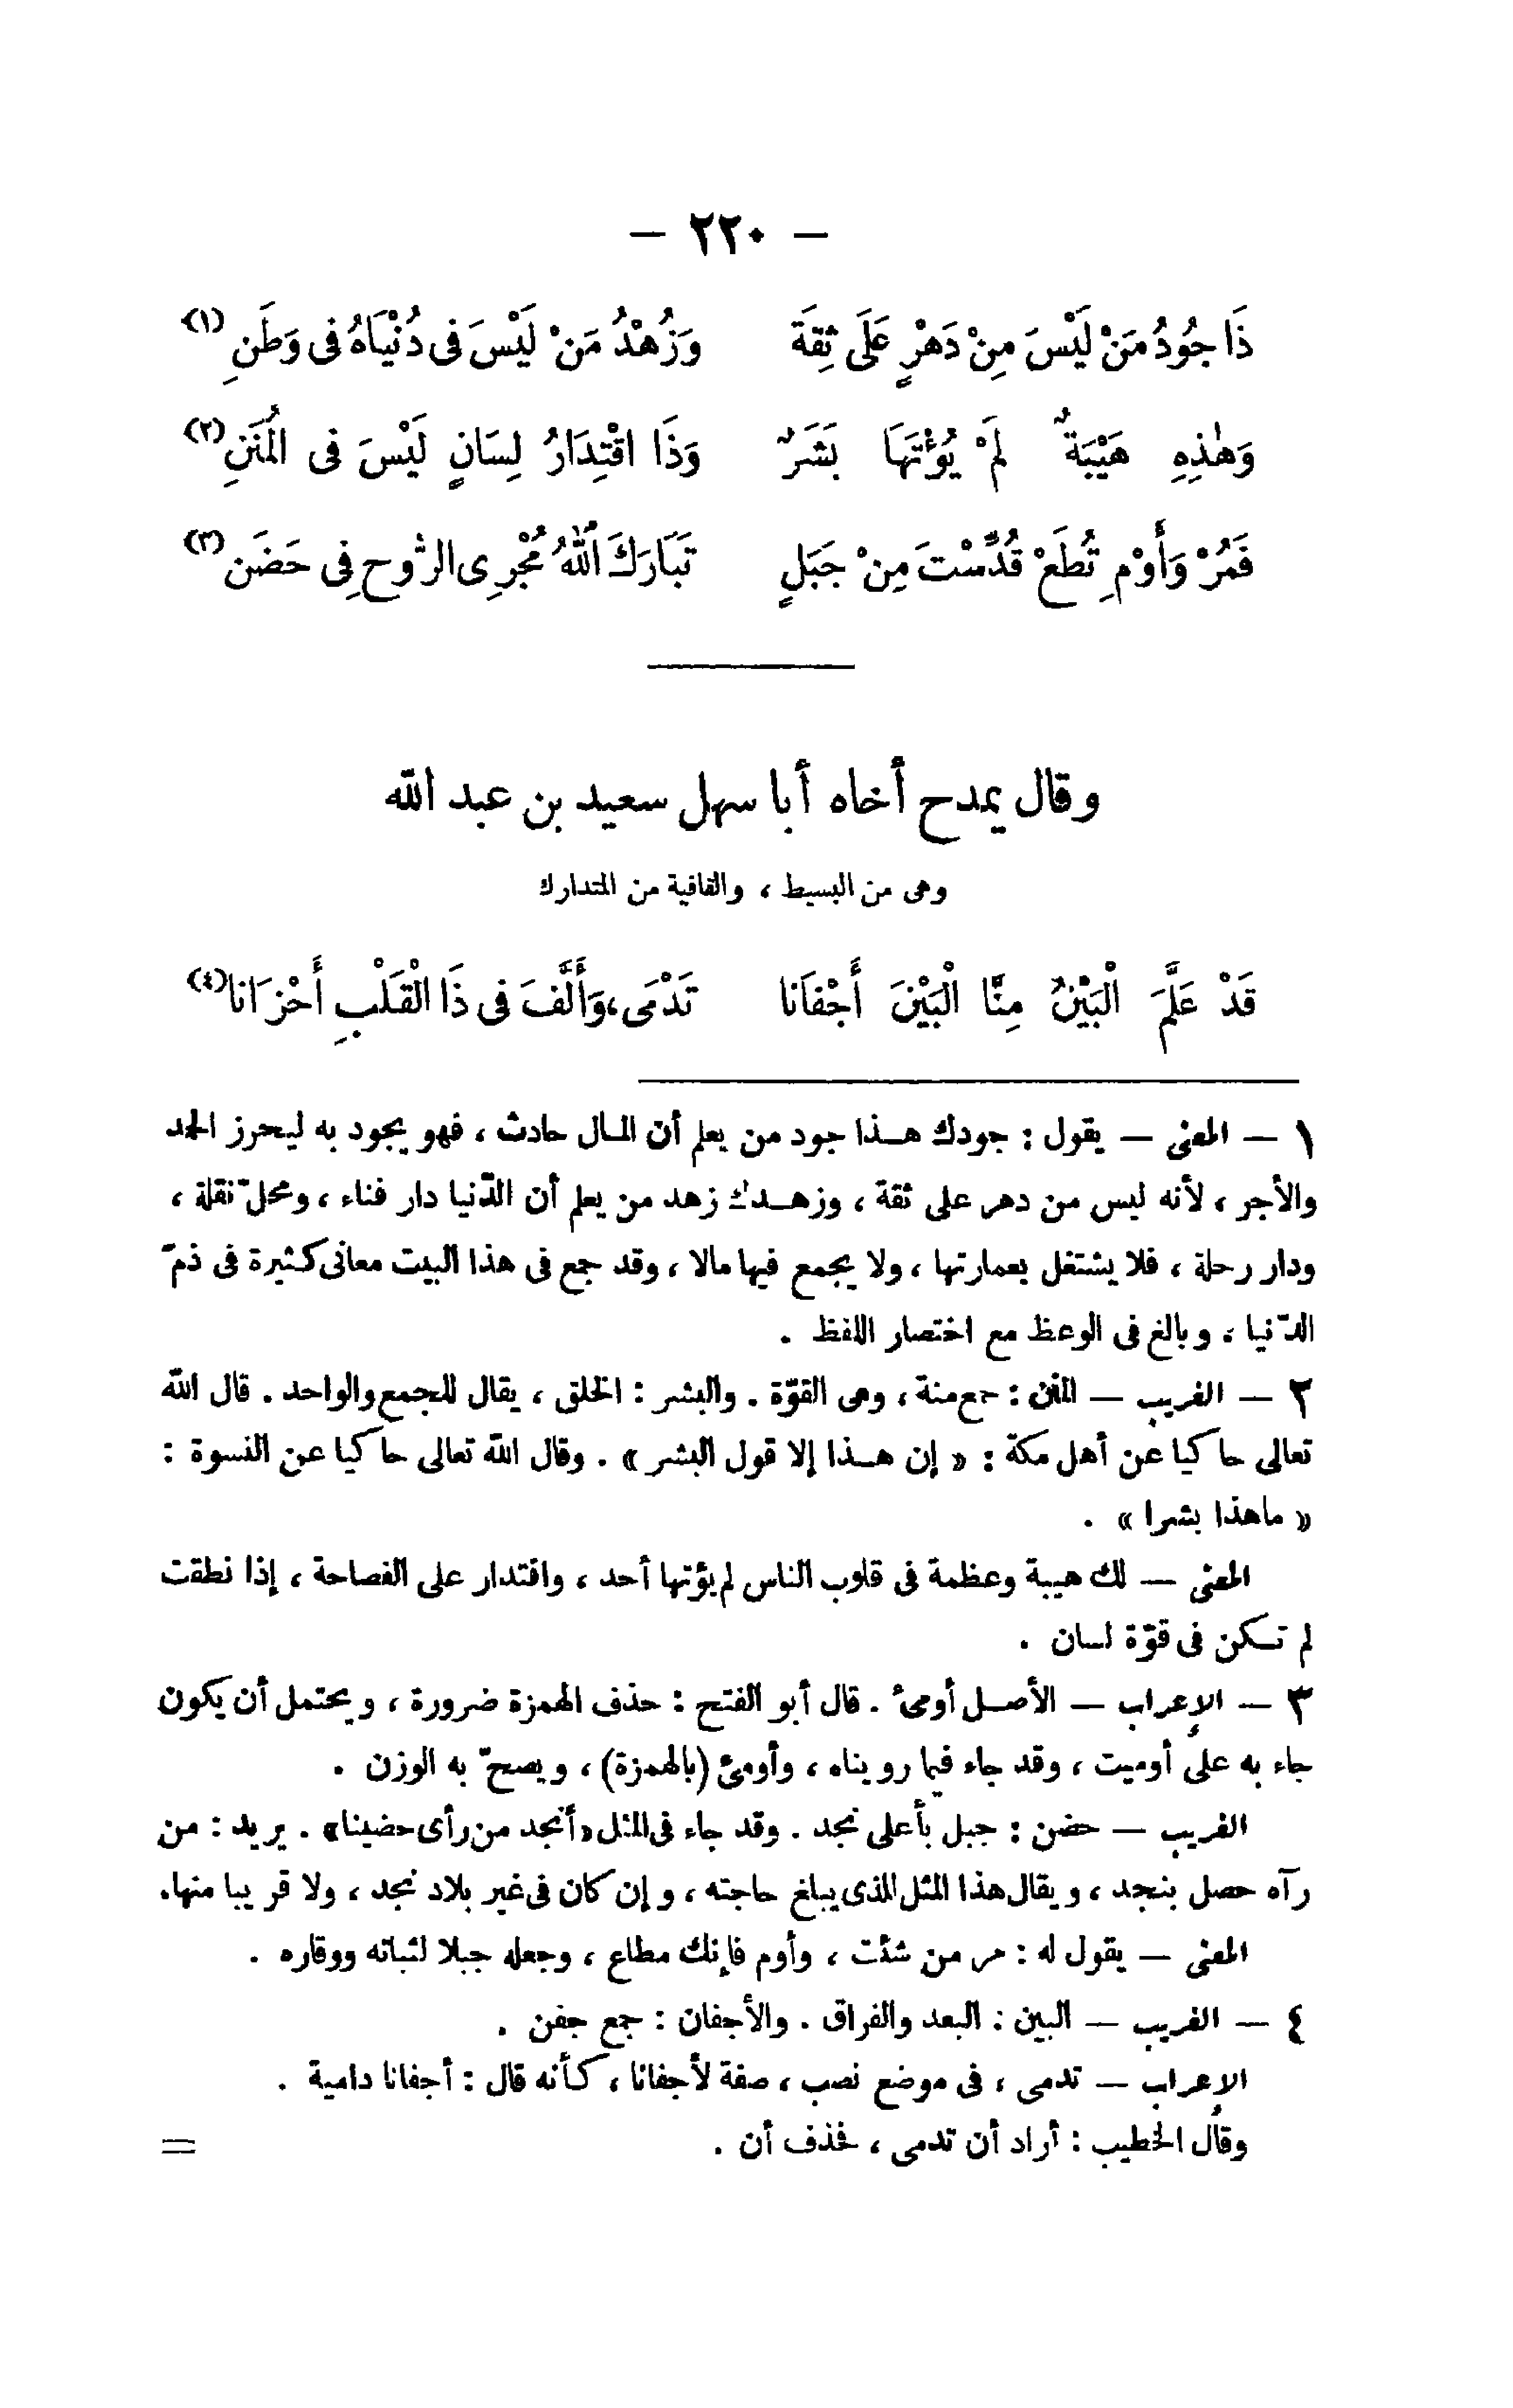 — ٢٢٠ —
ذَا جُودُ مَنْ لَيْسَ مِنْ دَهْرٍ عَلَى ثِقَةَ وَزُهْدُ مَنْ لَيْسَ فِى دُنْيَاهُ فِى وَطَنِ (١)
وَهٰذِهِ هَيْبَةٌ لَمْ يُؤْتَهَا بَشَرٌ وَذَا اقْتِدَارُ لِسَانٍ لَيْسَ فى الْمُنَنِ (٢)
فَمُرْ وَأَوْمِ تُطَعْ قُدِّسْتَ مِنْ جَبَلٍ تَبَارَكَ اللهُ مُجْرِى الرُّوحِ فِى حَضَنِ (٣)
وقال يمدح أخاه أبا سهل سعيد بن عبد الله
وهى من البسيط ، والقافية من المتدارك
قَدْ عَلَّمَ الْبَيْنُ مِنَّا الْبَيْنَ أَجْفَانَا تَدْمَى، وَأَلَّفَ فى ذَا الْقَلْبِ أَحْزَانا (٤)
١ — المعنى — يقول : جودك هـذا جود من يعلم أن المـال حادث ، فهو يجود به ليحرز الحمد
والأجر ، لأنه ليس من دهر على ثقة ، وزهـدك زهد من يعلم أن الدّنيا دار فناء ، ومحلّ نقلة ،
ودار رحلة ، فلا يشتغل بعمارتها ، ولا يجمع فيها مالا ، وقد جمع فى هذا البيت معانى كثيرة فى ذمّ
الدّنيا ، وبالغ فى الوعظ مع اختصار اللفظ .
٢ — الغريب — المنن : جمع منة ، وهى القوّة . والبشر : الخلق ، يقال للجمع والواحد . قال الله
تعالى حاكيا عن أهل مكة : « إن هـذا إلا قول البشر » . وقال الله تعالى حاكيا عن النسوة :
« ماهذا بشرا » .
المعنى — لك هيبة وعظمة فى قلوب الناس لم يؤتها أحد ، واقتدار على الفصاحة ، إذا نطقت
لم تـكن فى قوّة لسان .
٣ — الإعراب — الأصـل أومئ . قال أبو الفتح : حذف الهمزة ضرورة ، ويحتمل أن يكون
جاء به على أوميت ، وقد جاء فيما رويناه ، وأومئ (بالهمزة) ، ويصحّ به الوزن .
الغريب — حضن : جبل بأعلى نجد . وقد جاء فى المثل «أنجد من رأى حضينا» . يريد : من
رآه حصل بنجد ، ويقال هذا المثل للذى يبلغ حاجته ، وإن كان فى غير بلاد نجد ، ولا قريبا منها.
المعنى — يقول له : مر من شئت ، وأوم فإنك مطاع ، وجعله جبلا لثباته ووقاره .
٤ — الغريب — البين : البعد والفراق . والأجفان : جمع جفن .
الإعراب — تدمى ، فى موضع نصب ، صفة لأجفانا ، كأنه قال : أجفانا دامية .
وقال الخطيب : أراد أن تدمى ، فحذف أن . =